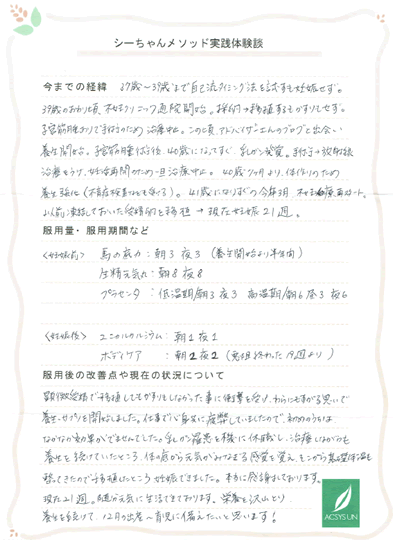 シーちゃんメソッド実践体験談
今までの経緯 37歳〜39歳まで自己流タイミング法を試すも妊娠せず。
39歳のおわり頃、不妊クリニック通院開始。採卵→移植するもかすりもせず。
子宮筋腫ありで手術のため治療中止。この頃アドバイザーさんのブログと出会い
養生開始。子宮筋腫術後、40歳になってすぐ、乳がん発覚。手術→放射線
治療を行う。妊活再開のため一旦治療中止。40歳7か月より、体作りのため
養生強化(不育症検査なども受ける)。41歳になりずの今年3月 不妊治療再スタート。
以前凍結しておいた受精卵を移植 → 現在妊娠21週。
服用量・服用期間など
〈妊娠前〉 馬の底力:朝3 夜3 (養生開始より半年間)
圧精元気れ:朝8 夜8
プラセンタ:低温期/朝3 夜3 高温期/朝6 昼3 夜6
〈妊娠後〉 ユニカルカルシウム:朝1 夜1
ボディケア:朝2 夜2 (免疫終わった19週より)
服用後の改善点や現在の状況について
顕微受精で移植してもかすりもしなかった事に衝撃を受け、わらにもすがる思いで
養生・サプリを開始しました。仕事で心身共に疲弊していましたので、初めのうちは
なかなか効果がでませんでした。乳がん罹患を機に休職し、治療しながらも
養生を続けていたところ、体の底から元気がみなぎる感覚を覚え、そこから基礎体温も
整ってきたので移植したところ妊娠できました。本当に感謝しております。
現在21週。母子共元気に生活できております。栄養を沢山とり
養生を続けて、12月の出産〜育児に備えたいと思います!
ACSYS UN